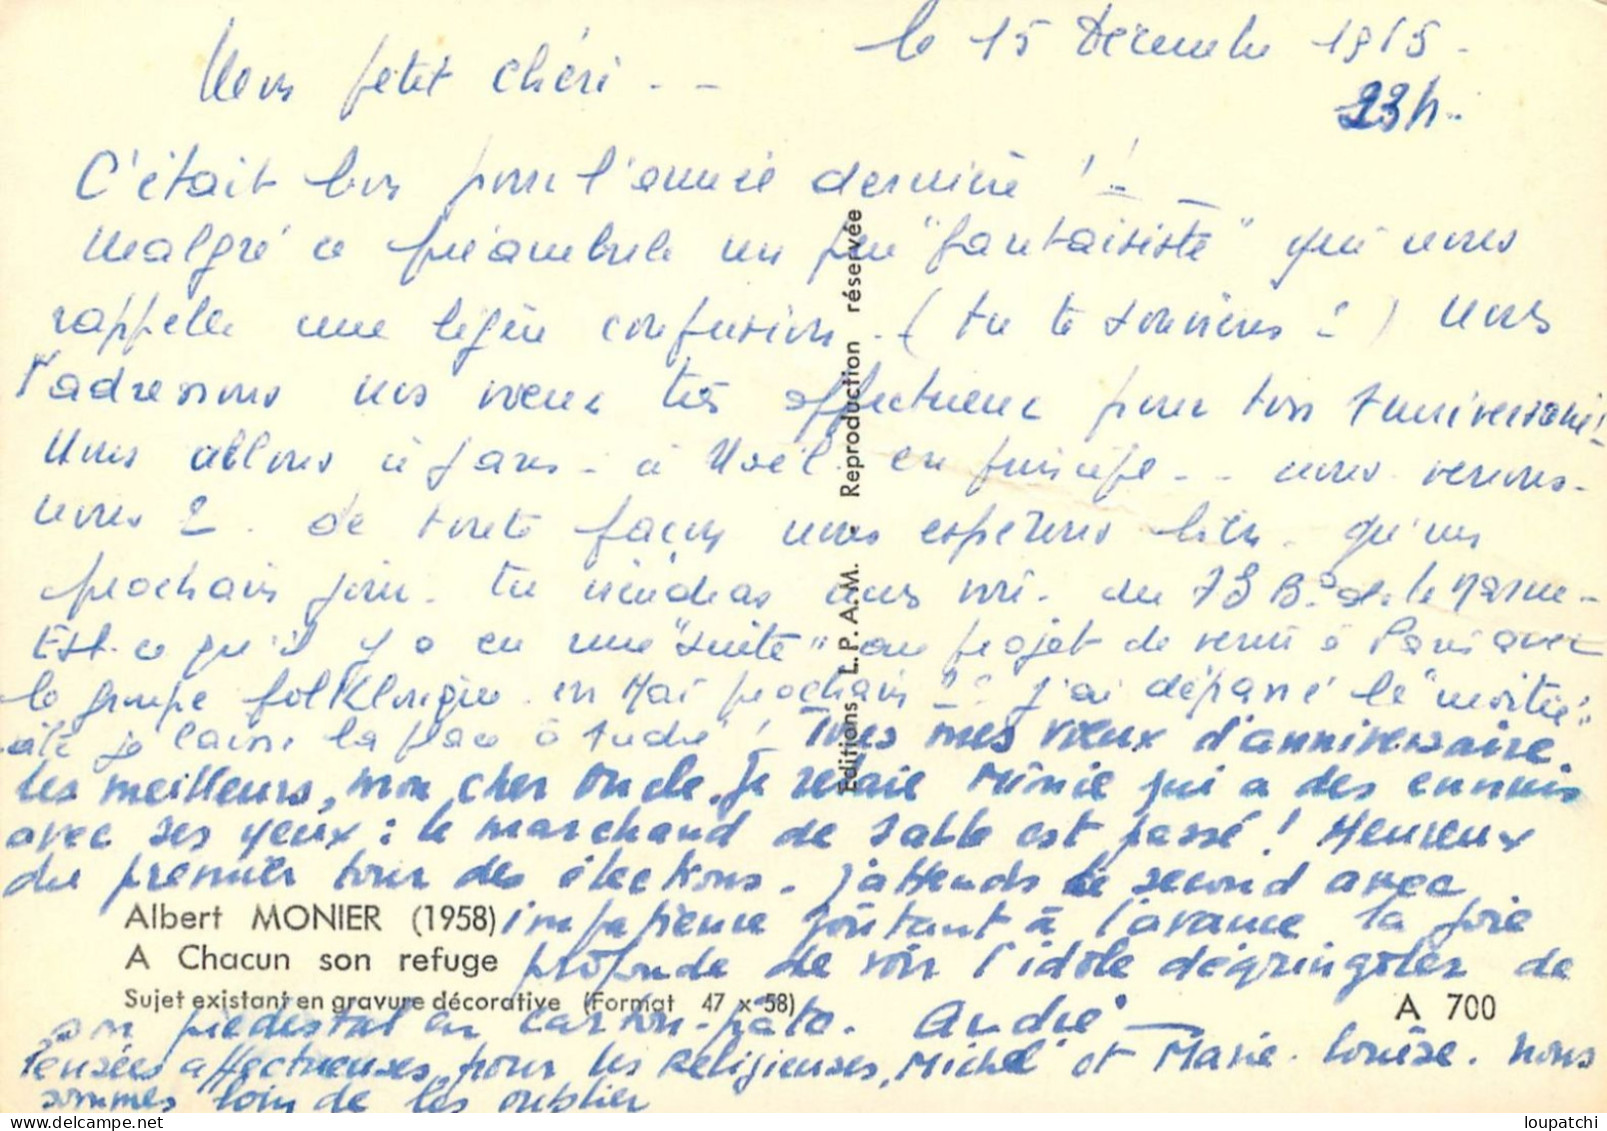 le 15 Décembre 1915 -
23h..
Mon petit chéri - -
C'était bon pour l'année dernière ! ! -
Malgré ce préambule un peu "fantaisiste" qui nous
rappelle une légère confusion. (tu te souviens ?) Nous
t'adressons nos voeux très affectueux pour ton Anniversaire!
Nous allons à - à Noël. en principe - - nous verrons-
nous ? de toute façon nous espérons bien. qu'un
prochain jour. tu viendras nous voir. au 73 Bd de la Marne -
Est-ce qu'il y a eu une "suite" au projet de venir à Paris avec
le groupe folklorique. en Mai prochain ?? J'ai dépassé la "moitié"
je laisse la place à André ! Tous mes vœux d'anniversaire
les meilleurs, mon cher Oncle. Je relaie Mimie qui a des ennuis
avec ses yeux : le marchand de sable est passé ! Heureux
du premier tour des élections. J'attends le second avec
impatience goûtant à l'avance la joie
profonde de voir l'idole dégringoler de
son piédestal en carton-pâte. André -
Pensées affectueuses pour les Religieuses, Michel et Marie-Louise. Nous
sommes loin de les oublier
Albert MONIER (1958)
A Chacun son refuge
Sujet existant en gravure décorative (Format 47 x 58)
A 700
Editions L.P.A.M. - Reproduction réservée
www.delcampe.net
loupatchi